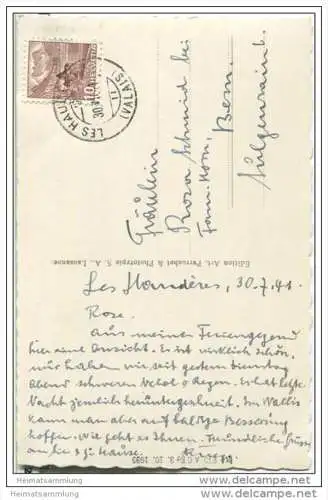 LES HAU
(VALAIS)
30
HELVETIA
10
Fräulein
Rosa Schmid bei
Fam. Horn,
Bern.
Sulgenrain
Edition Art. Perrochet & Phototypie S. A., Lausanne
Les Haudères, 30.7.41.
Rose.
Aus meiner Feriengegend
hier eine Ansicht. Es ist wirklich schön,
nur haben wir seit gestern Dienstag
Abend schweren Nebel & Regen. Es hat letzte
Nacht ziemlich heruntergeschneit. Im Wallis
kann man aber auf baldige Besserung
hoffen. Wie geht es Ihnen. Freundliche Grüsse
Hause.
Heimatsammlung
Heimatsammlung